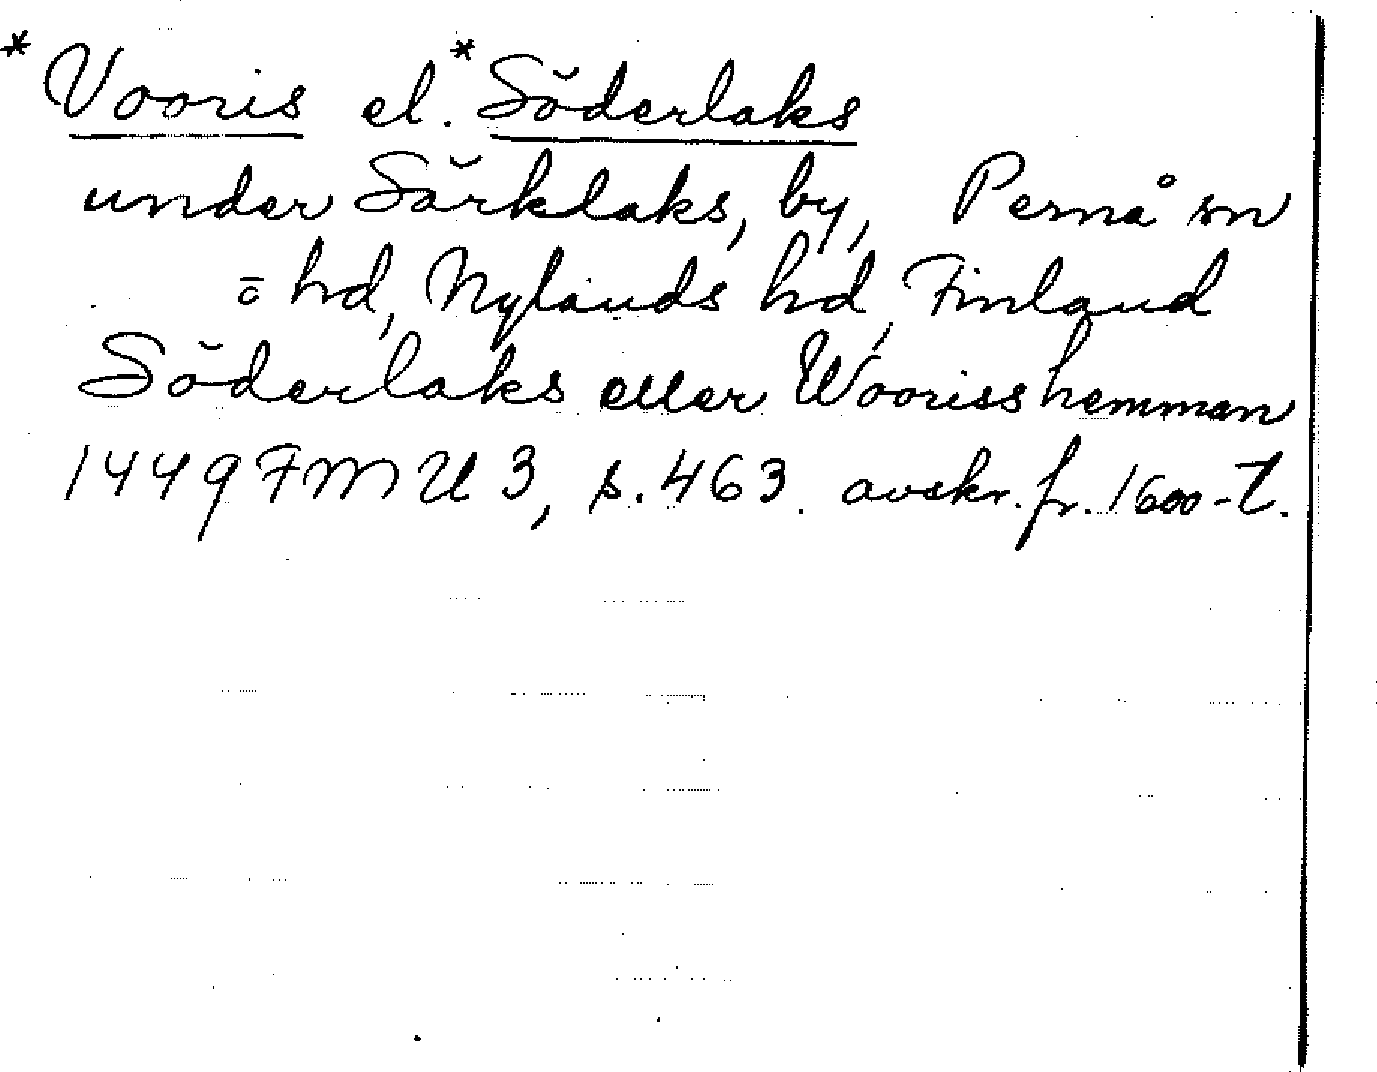 *Vooris el. *Söderlaks
under Särklaks, by, Pernå sn
o hd, Nylands hd, Finland
Söderlaks eller Wooriss hemman
1449 FMU 3, s. 463. avskr. fr. 1600-t.